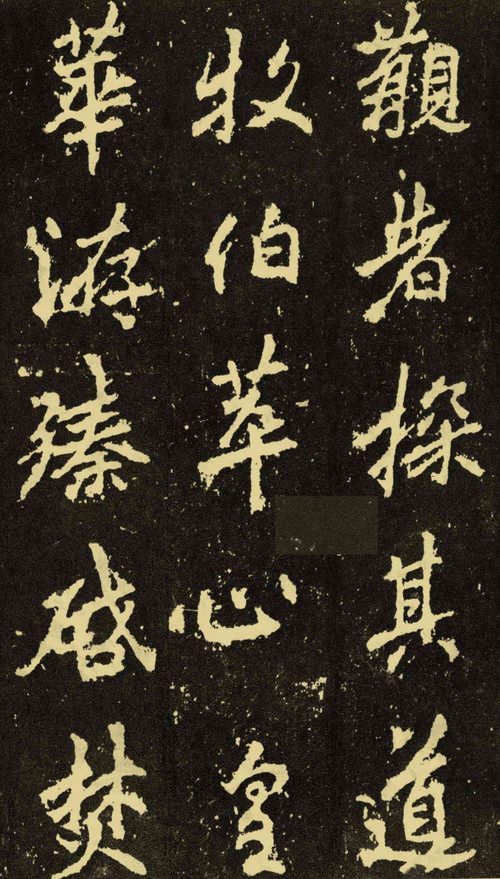 觀者探其道
牧伯萃心皇
華游臻啓焚